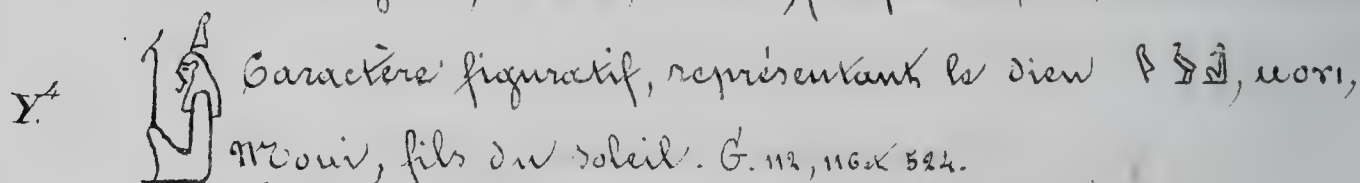 Y.⁴ Caractère figuratif, représentant le dieu , ⲙⲟⲩⲓ,
Mouï, fils du soleil. G. 112, 116 et 524.